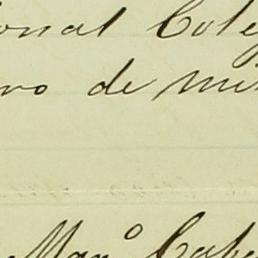 ional Coleg
ro de min
Man.º Caba